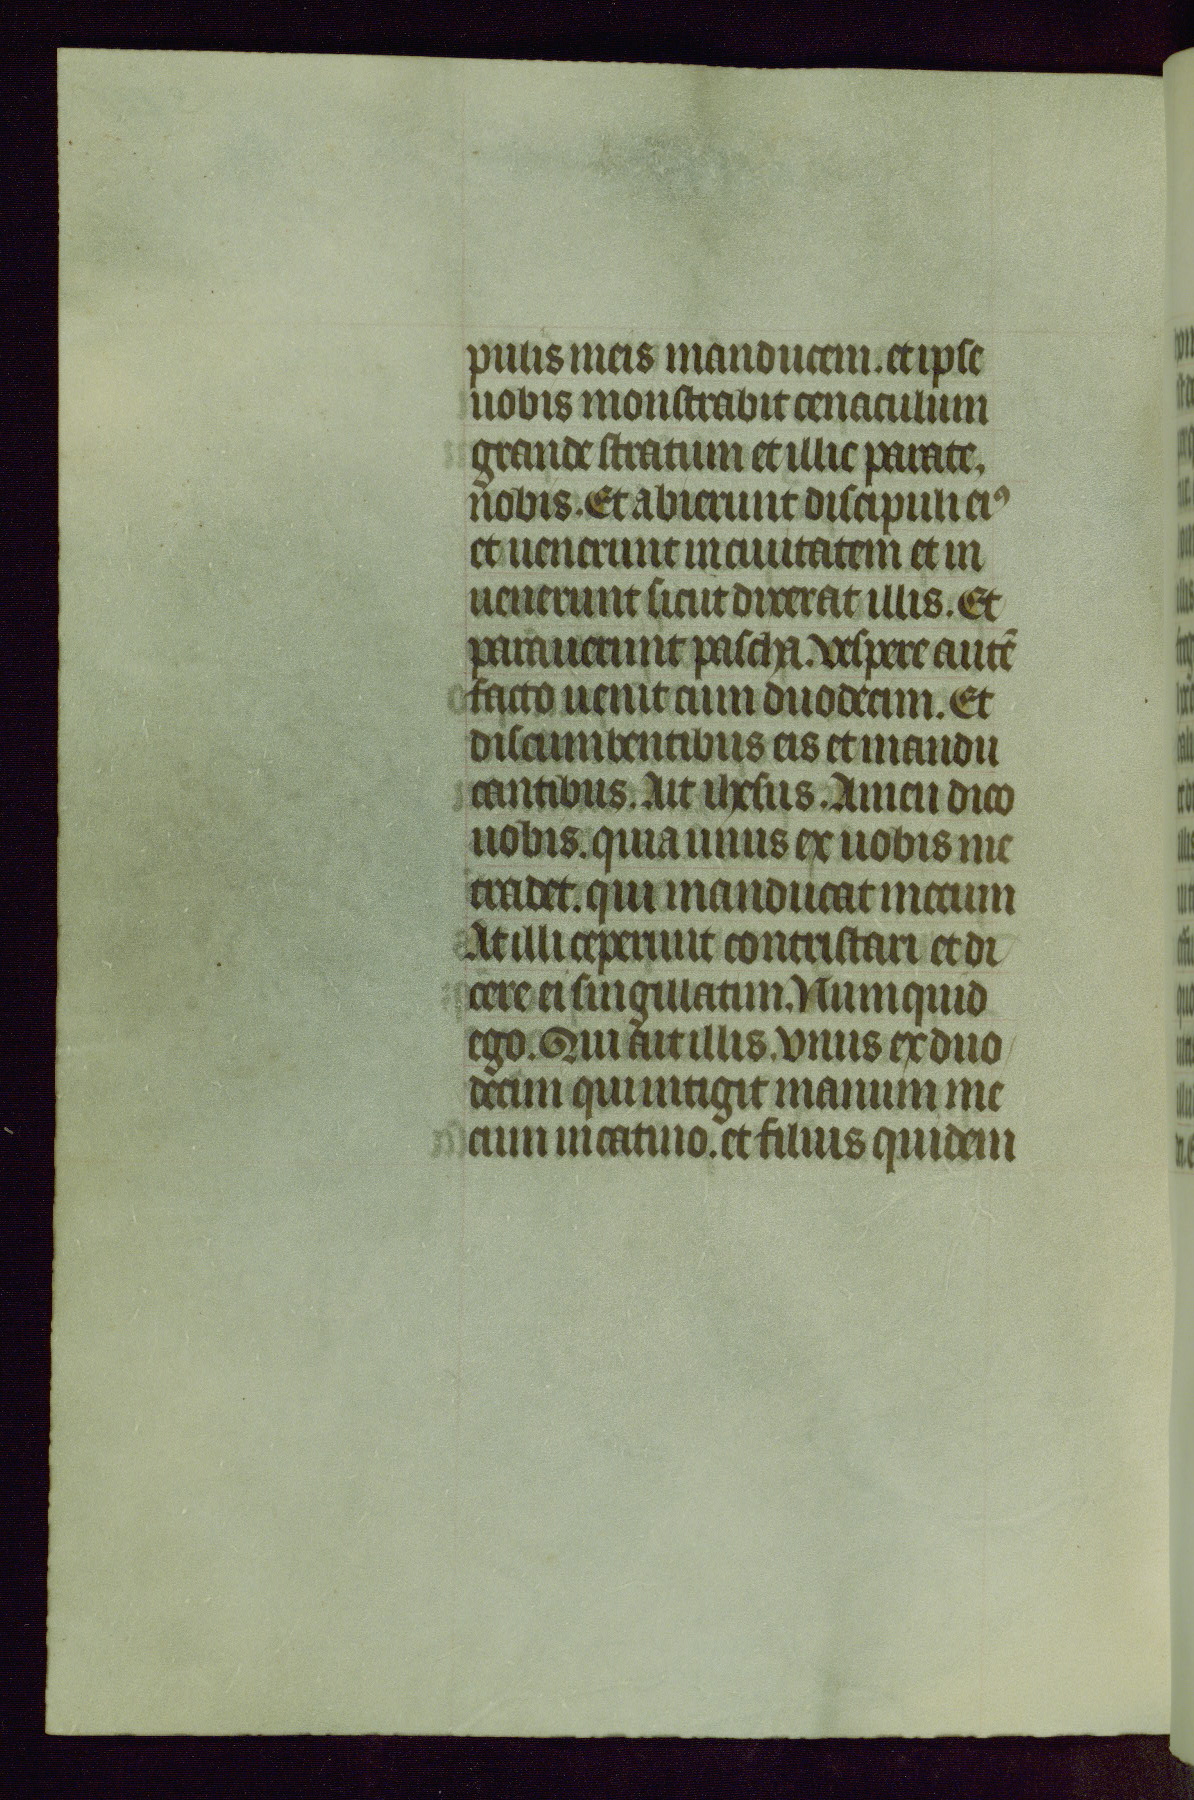 pulis meis manducem. et ipse
uobis monstrabit cenaculum
grande stratum et illic parate,
nobis. Et abierunt discipuli eiꝰ
et uenerunt in ciuitatem et in
uenerunt sicut dixerat illis. Et
parauerunt pascha. Vespere autē
facto uenit cum duodecim. Et
discumbentibus eis et mandu
cantibus. Ait ihesus. Amen dico
uobis. quia unus ex uobis me
tradet. qui manducat mecum
At illi ceperunt contristari et di
cere ei singillatim. Numquid
ego. Qui ait illis. vnus ex duo
decim qui intigit manum me
cum in catino. et filius quidem